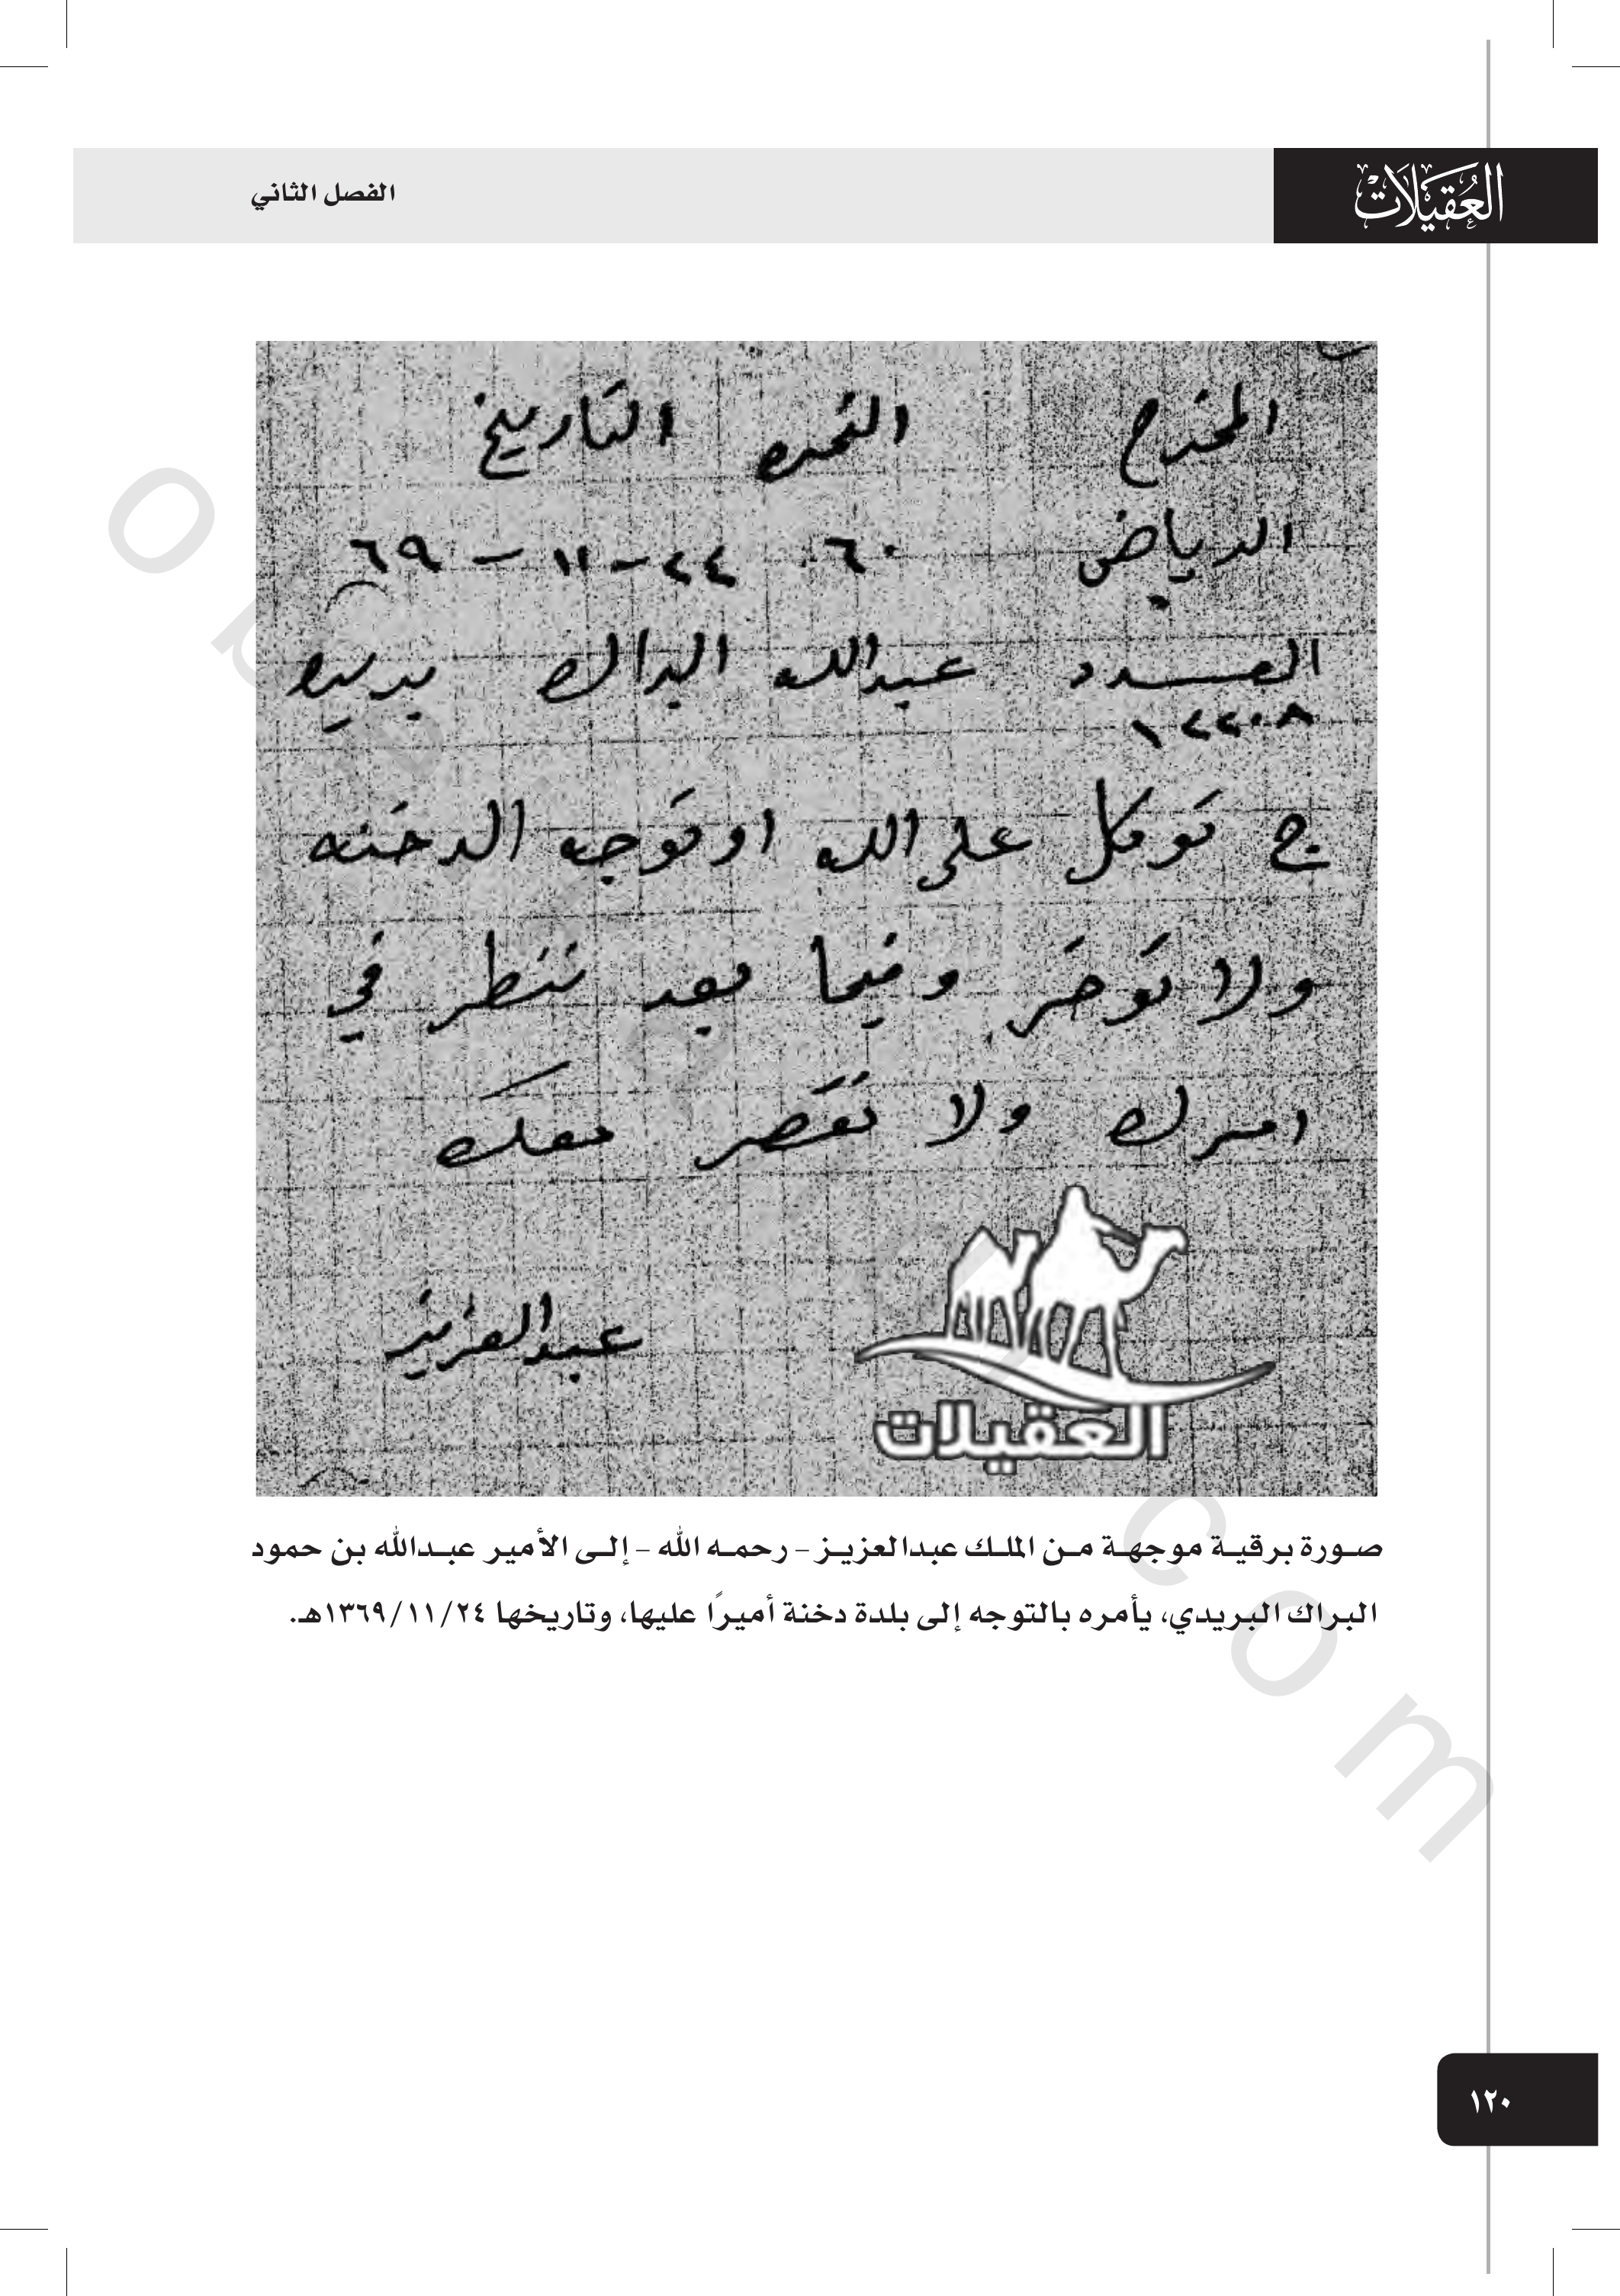 العقيلات
الفصل الثاني
المخرج النمره التاريخ
الرياض ٦٠ ٢٤-١١-٦٩
العدد عبدالله البراك بريده
١٢٢٠٨
ج توكل على الله او توجه الدخنه
ولا توخر وفيما بعد ننظر في
امرك ولا نقصر معك
عبدالعزيز
العقيلات
صورة برقية موجهة من الملك عبدالعزيز – رحمه الله – إلى الأمير عبدالله بن حمود
البراك البريدي، يأمره بالتوجه إلى بلدة دخنة أميرًا عليها، وتاريخها ١٣٦٩/١١/٢٤هـ.
١٢٠